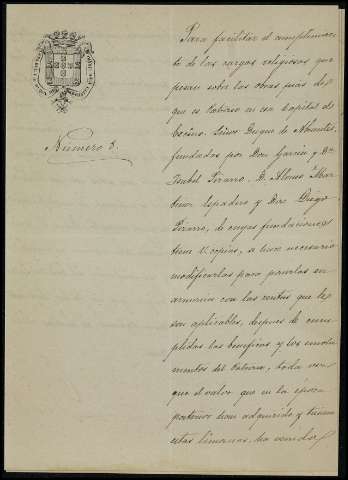 Número 3.
Para facilitar el cumplimien-
to de las cargas religiosas que
pesan sobre las obras pias de
que es Patrono en esa Capital el
Excmo. Señor Duque de Abrantes,
fundadas por Don Garcia y Dª
Isabel Pizarro, D. Alonso Mar-
tinez y Don Diego
Pizarro, de cuyas fundaciones
tiene V. copias, se hace necesario
modificarlas para ponerlas en
armonia con las rentas que le
son aplicables, despues de cum-
plidas las beneficas y los emolu-
mentos del Patrono, toda vez
que el valor que en la época
posterior han adquirido y tienen
estas limosnas, ha venido